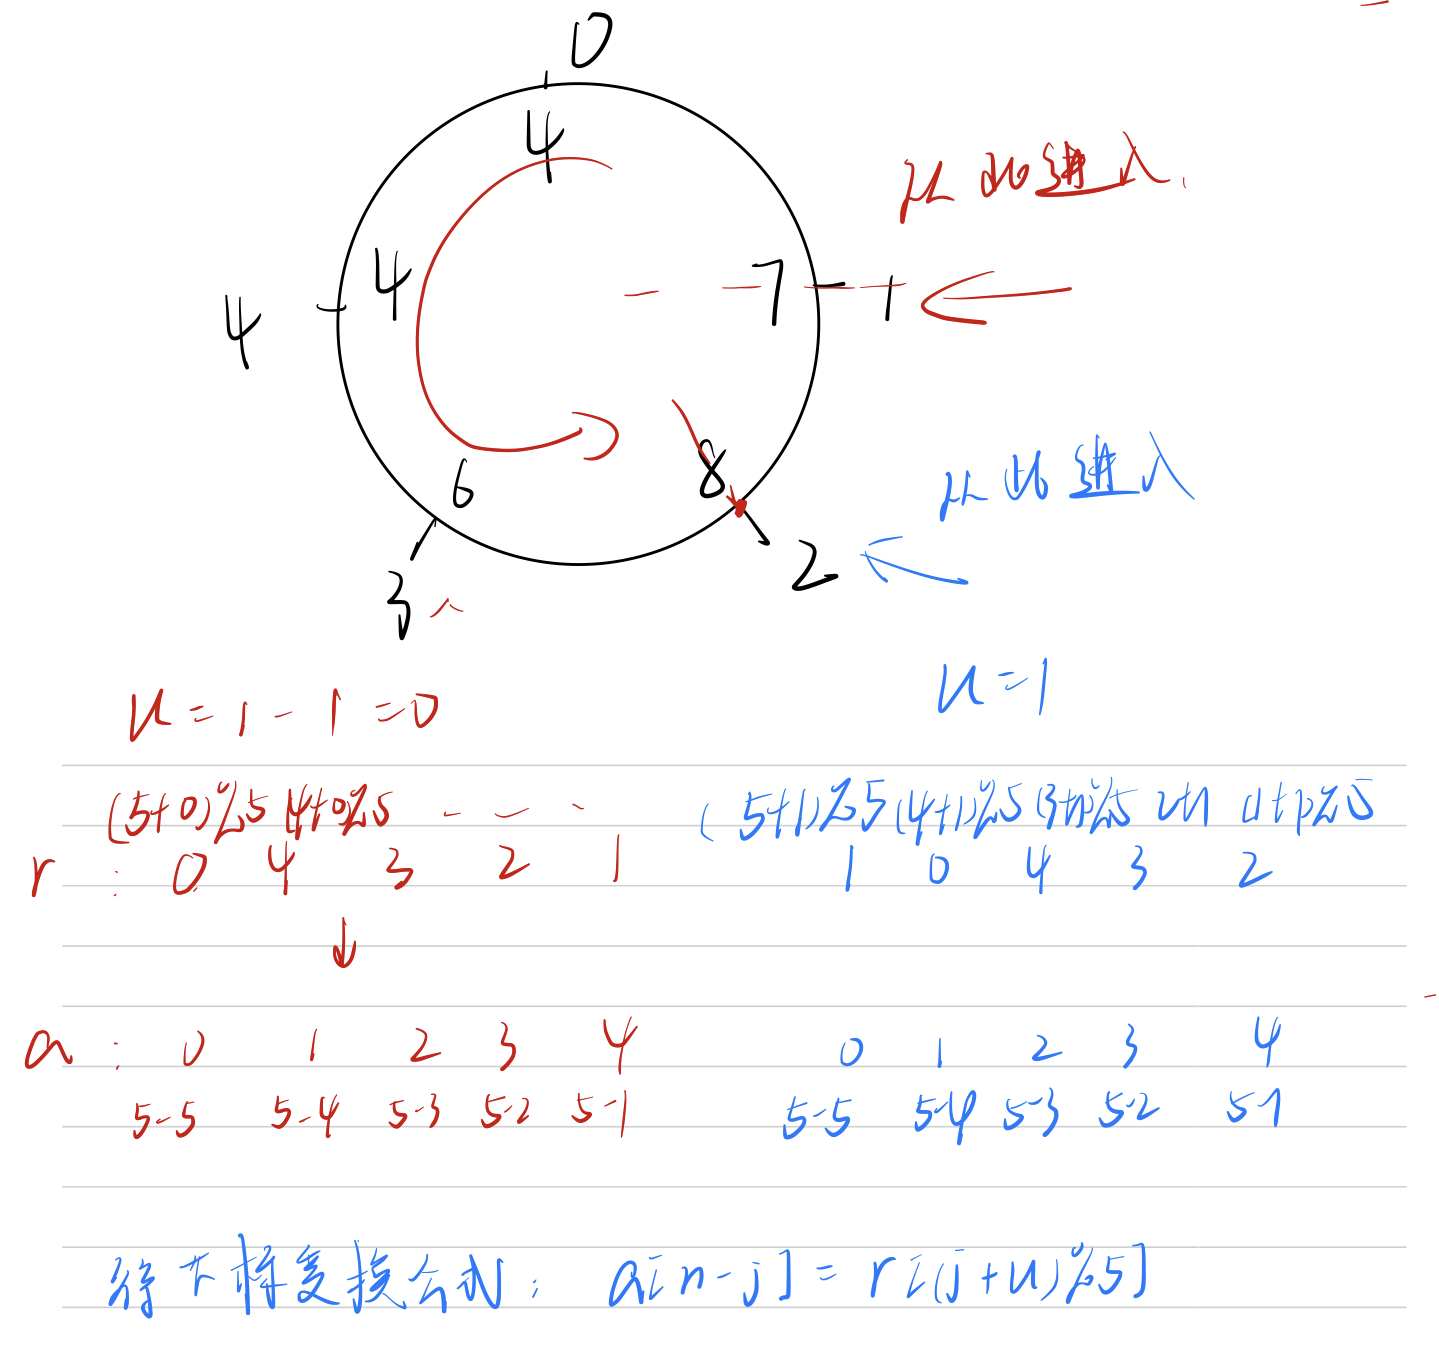 0
4
从此进入
4
4
7
1
从此进入
6
8
3
2
u=1-1=0
u=1
(5+0)%5 (4+0)%5
(5+1)%5 (4+1)%5 (3+1)%5 2+1 (1+1)%5
r: 0 4 3 2 1
1 0 4 3 2
a: 0 1 2 3 4
0 1 2 3 4
5-5 5-4 5-3 5-2 5-1
5-5 5-4 5-3 5-2 5-1
得下标变换公式: a[n-j]=r[(j+u)%5]